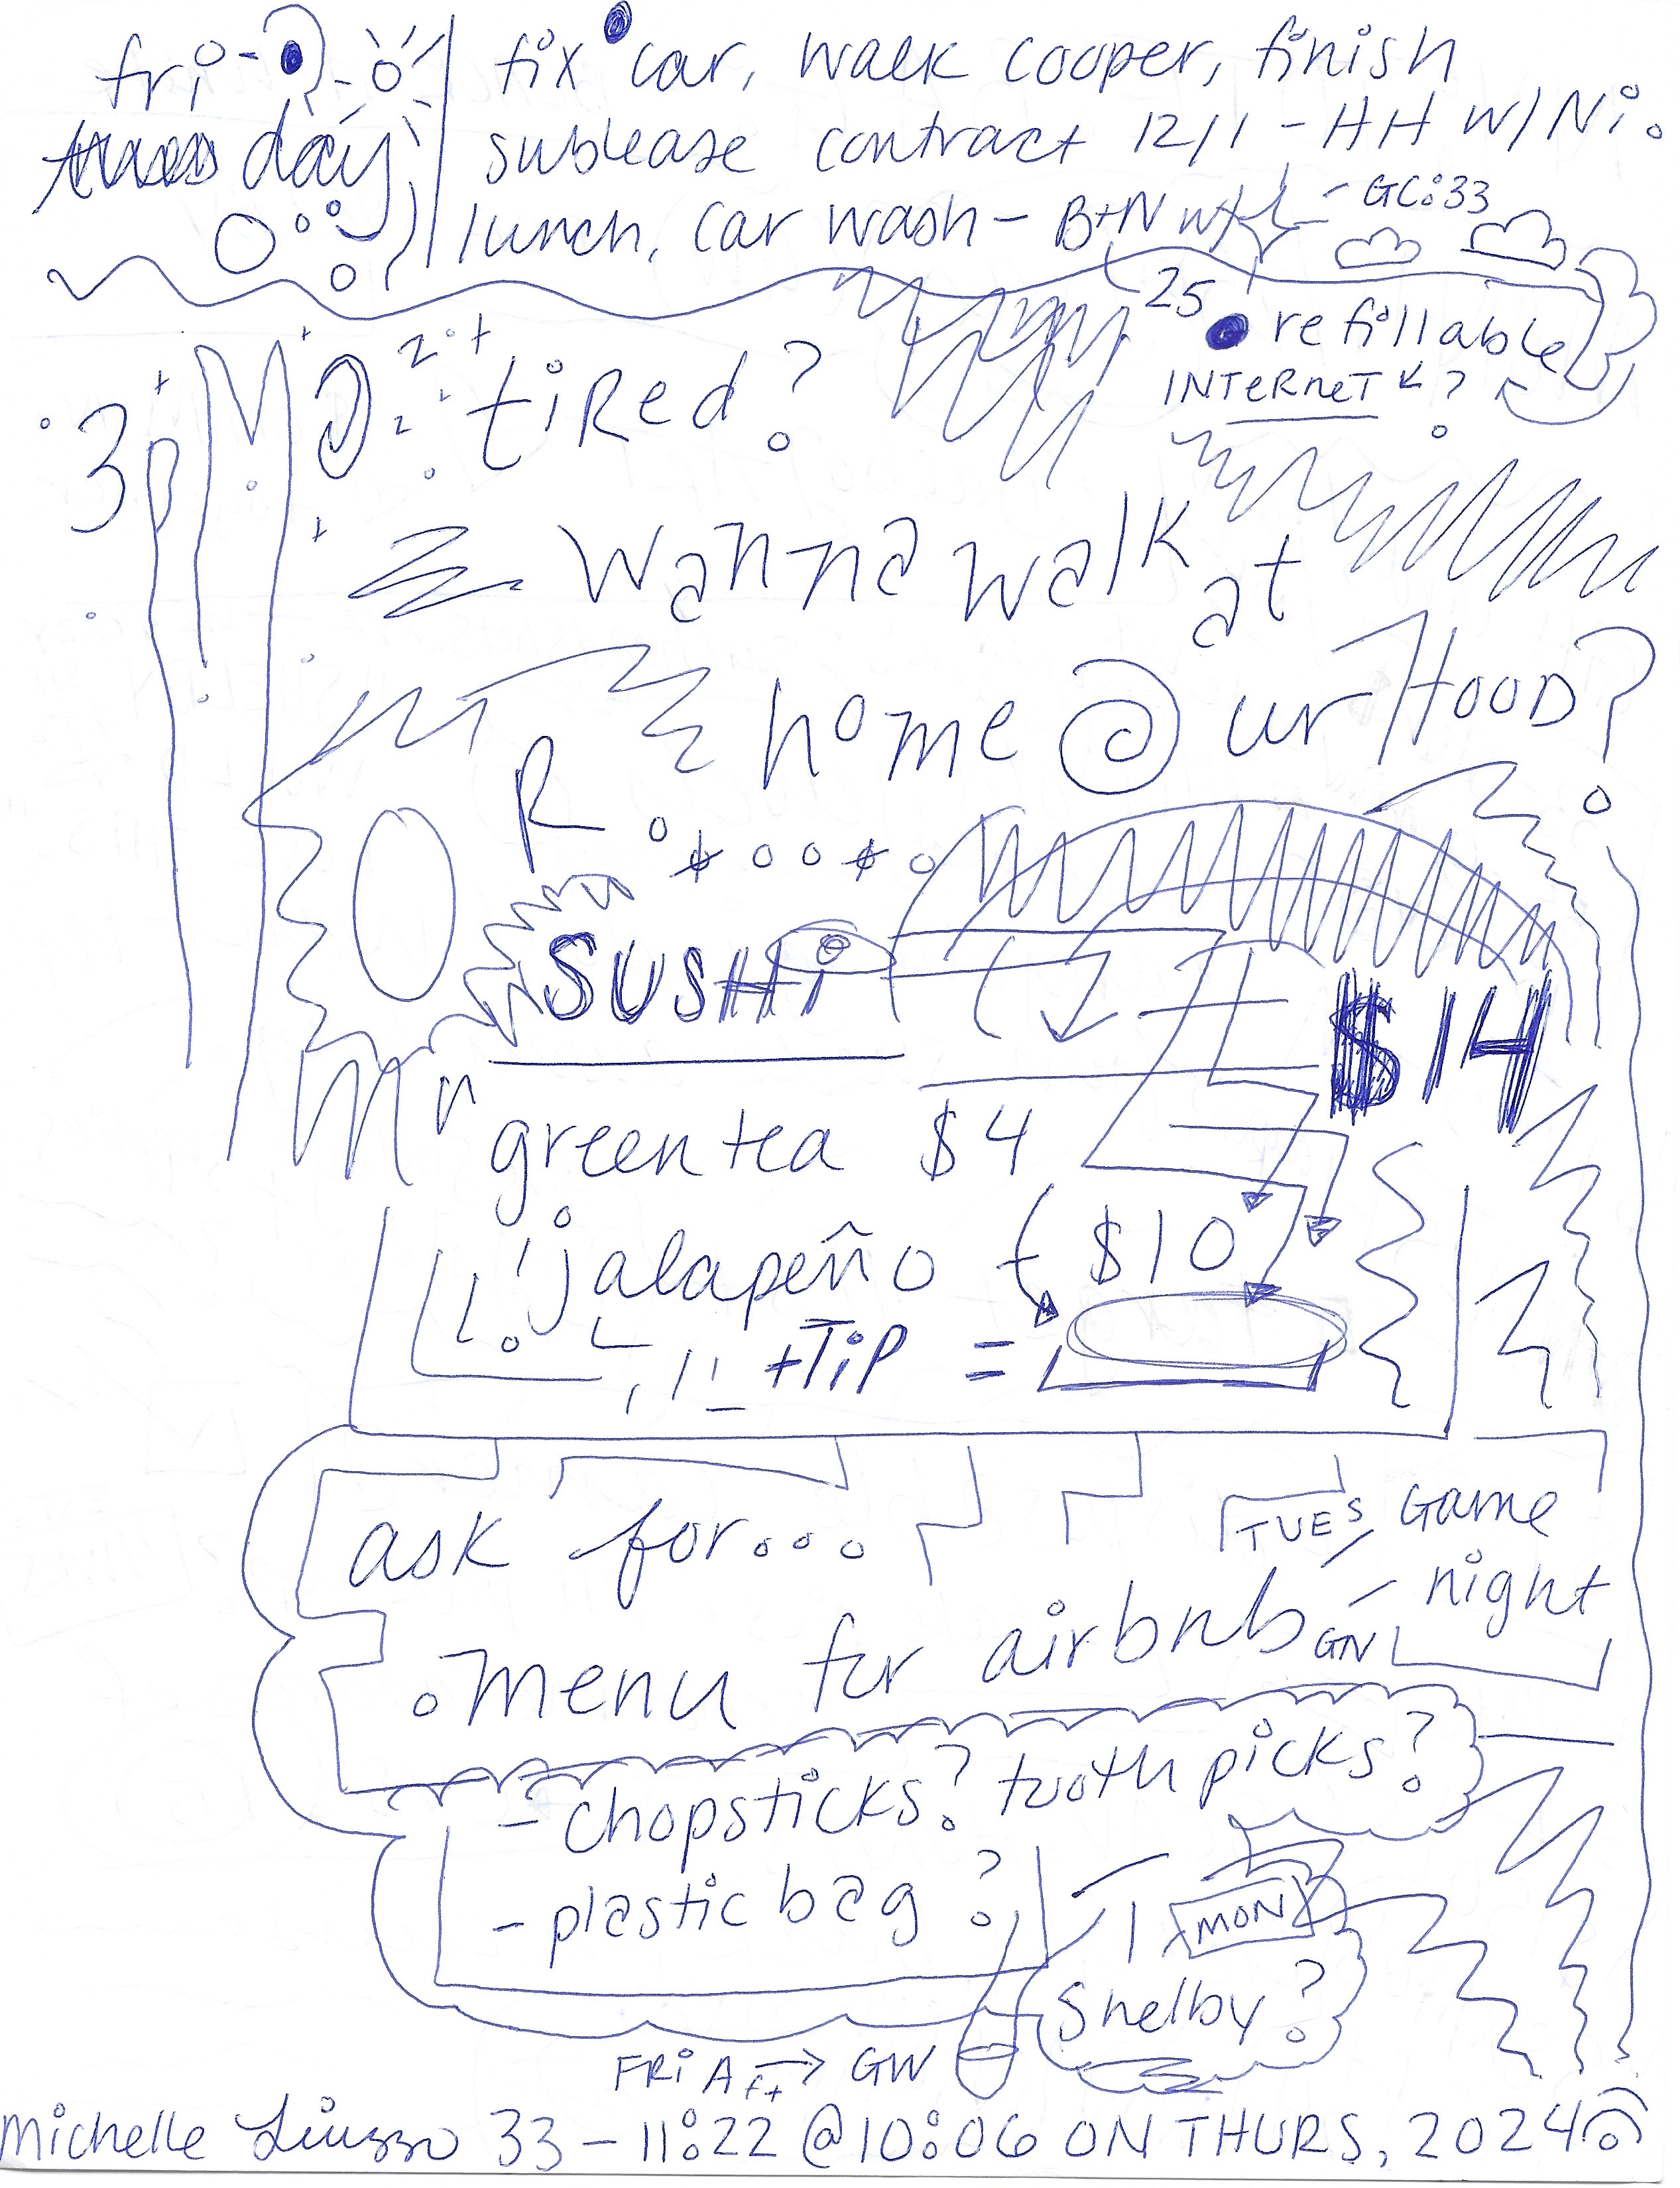 fri-day
fix car, walk cooper, finish
sublease contract 12/1 - HH w/ Ni.
lunch, car wash - B+N w/ - GC:33
25
refillable
INTeRneT ?
3pM
tiRed?
wanna walk at
home @ ur HOOD?
R
SUSHi
$14
green tea $4
jalapeño ($10)
+TiP =
ask for...
TUES Game
night
menu for airbnb GN
- chopsticks? toothpicks?
- plastic bag?
MON
Shelby?
FRi Aft → GW
michelle Liuzzo 33 - 11:22 @ 10:06 ON THURS, 2024